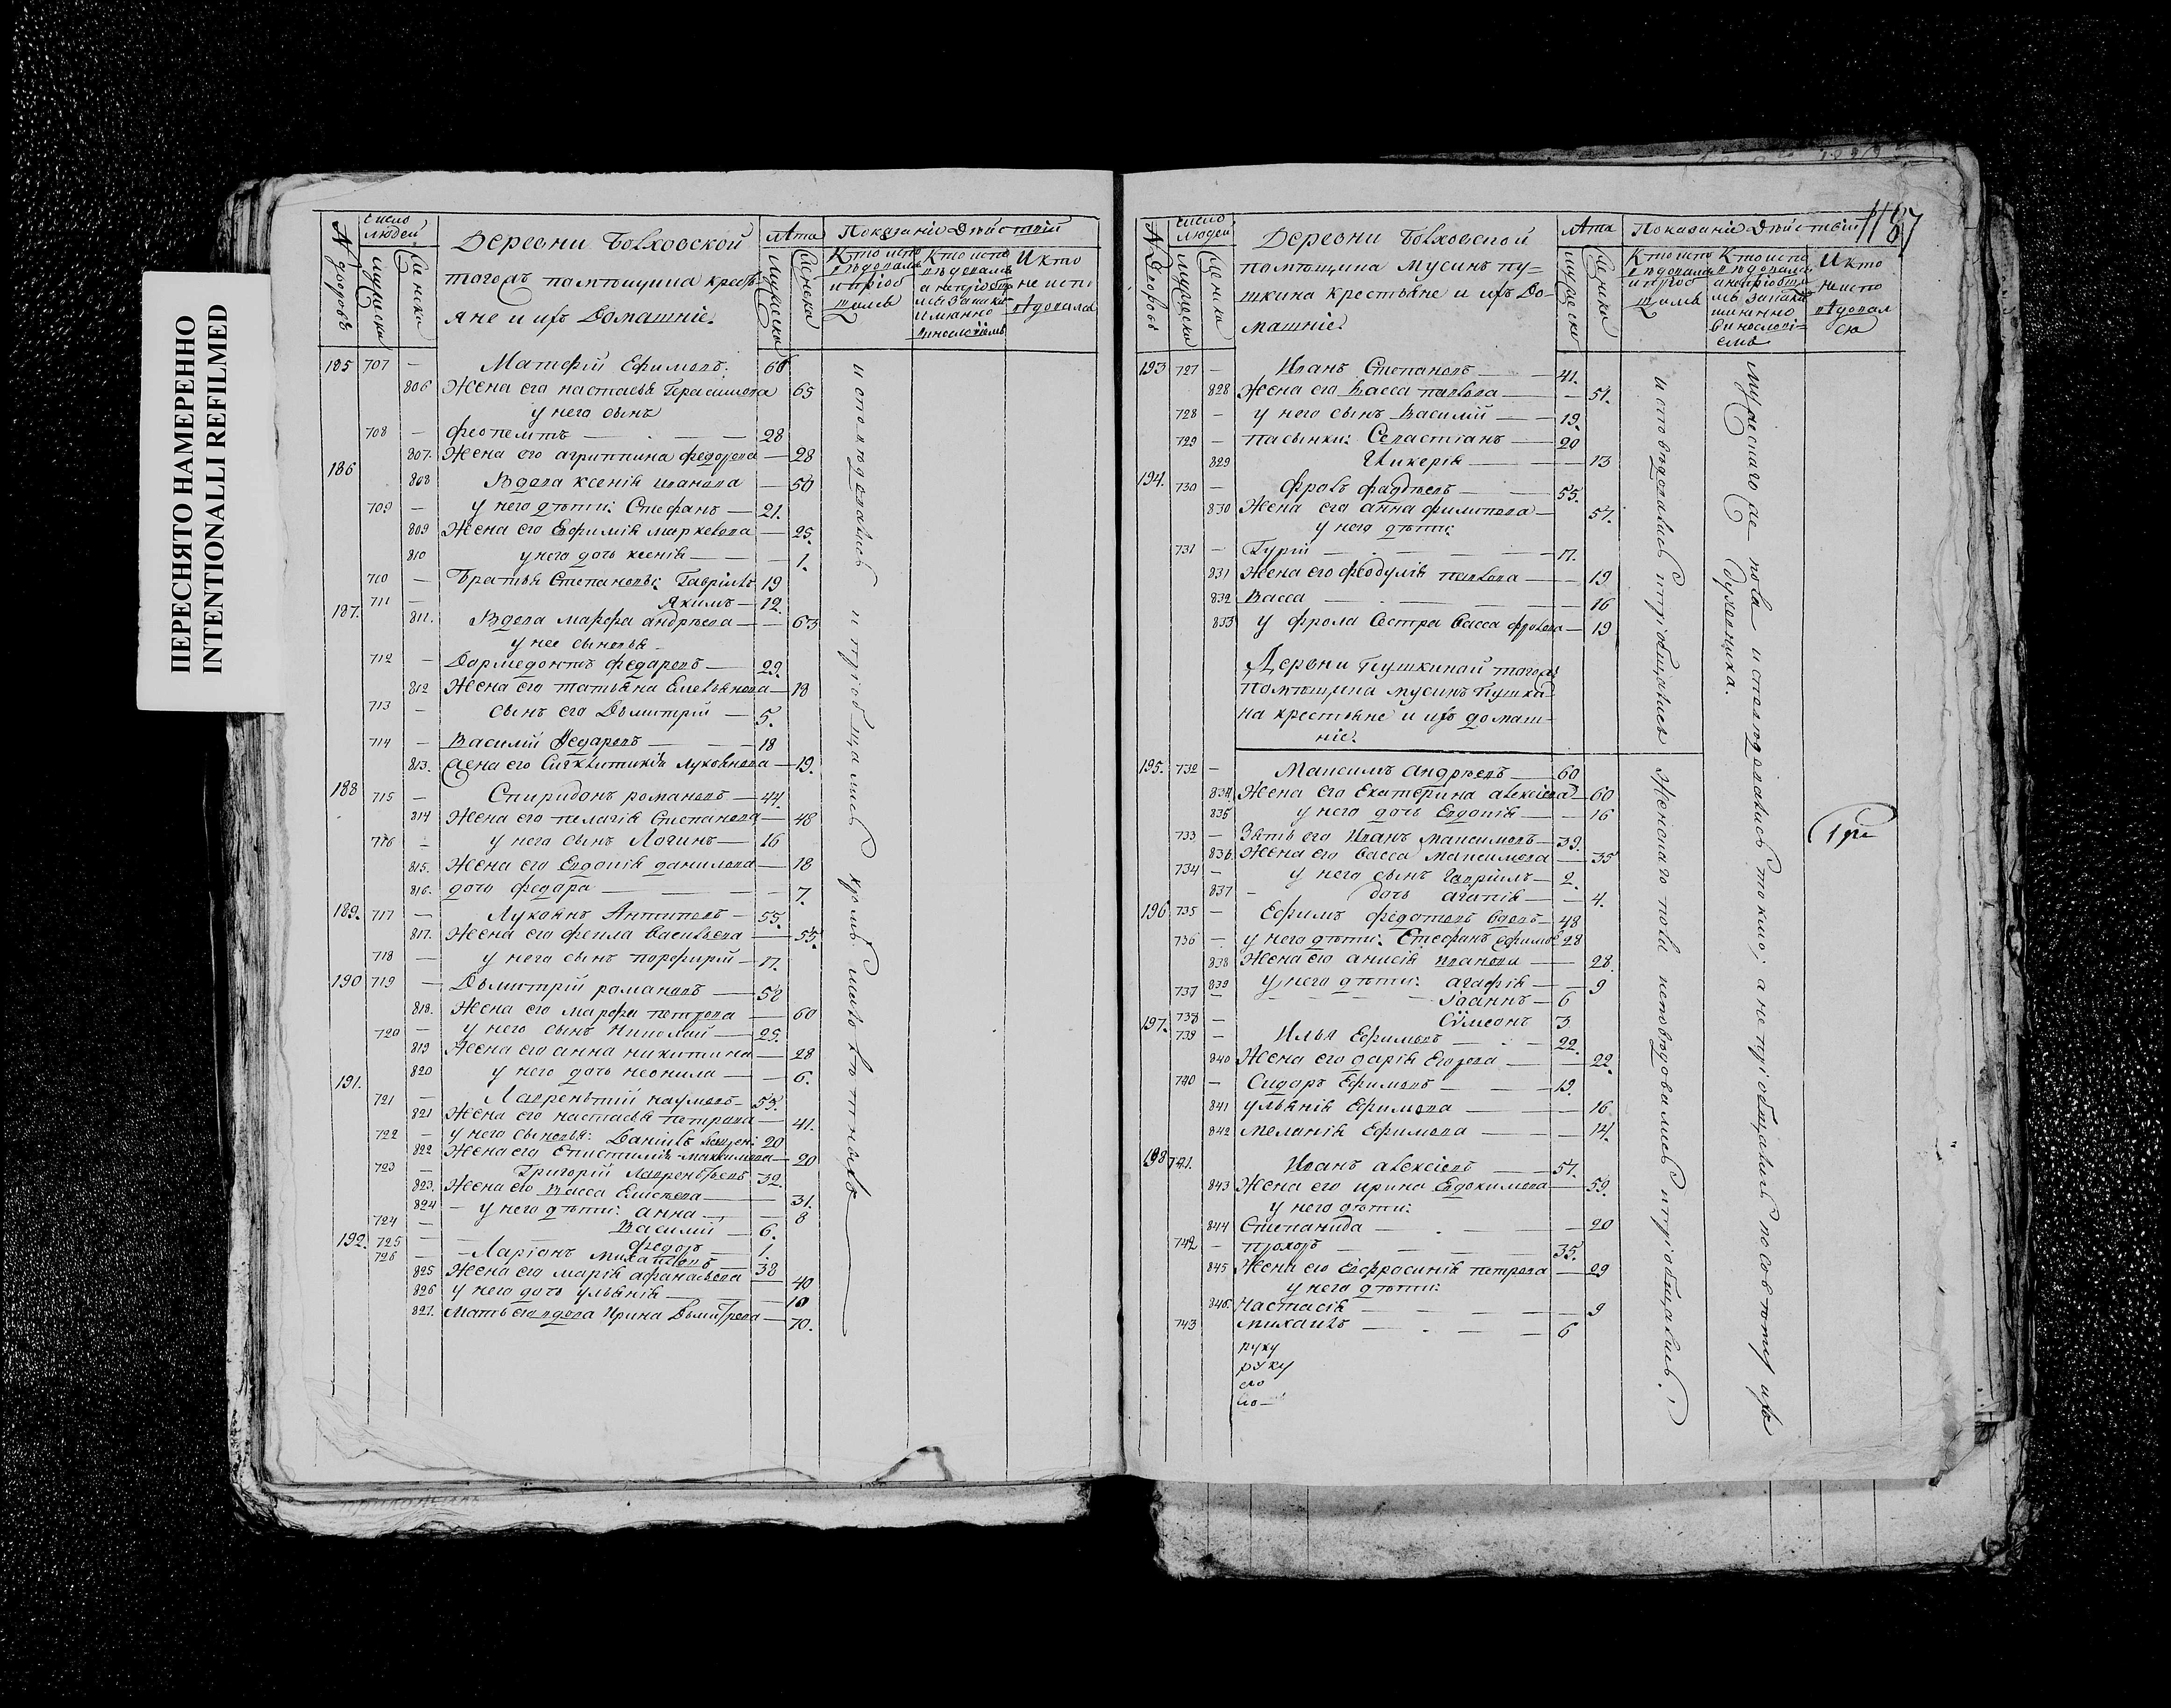 ПЕРЕСНЯТО НАМЕРЕННО
INTENTIONALLI REFILMED
N дворовъ
число людей
мужеска
женска
Деревни Болховской
тогожъ помѣщика кресть
яне и ихъ домашніе.
Лѣта
мужеска
женска
Показаніе Дѣйствій
185 707 — Матфій Ефимовъ. 66
806 Жена его настасья Герасимова 65
у него сынъ
708 — феопемтъ — 28
807. Жена его агриппина федорова — 28
186 808 Вдова ксенія иванова — 50
709 — у него дѣти: Стефанъ — 21.
809 Жена его Евфимія маркелова — 25.
810 у него дочь ксенія — 1.
710 — Братья Степановы: Гавріилъ 19
711 — Якимъ — 12.
187. 811. Вдова марфа андрѣева — 63
у нее сыновья
712 — Дормедонтъ федаровъ — 29.
812 Жена его татьяна Емельянова — 18
713 — сынъ его Дьмитрій — 5.
714 — Василій Федаровъ — 18
813. Жена его Сигклитикія Лукоянова — 19.
188 715 — Спиридонъ романовъ — 44.
814 Жена его пелагія Степанова — 48
716 — у него сынъ Логинъ — 16
815. Жена его Евдокія данилова — 18
816. дочь федора — 7.
189. 717 — Лукоянъ Антиповъ — 55.
817. Жена его фекла васильева — 55.
718 — у него сынъ порфирій — 17.
190 719 — Дьмитрій романовъ — 58
818. Жена его марфа петрова — 60
720 — у него сынъ николай — 25.
819 Жена его анна никитина — 28
820 у него дочь неонила — 6.
191. 721 — Лаврентій наумовъ — 53.
821 Жена его настасья петрова — 41.
722 — у него сыновья: Даніилъ 20
822 Жена его Епистимія максимова — 20
723 — Григорій Лаврентьевъ 32.
823. Жена его васса Елисѣева — 31.
824 — у него дѣти: анна — 8
724 — Василій — 6.
725 — федоръ — 1.
192. 726 — Ларіонъ михайловъ — 38
825 Жена его марія афанасьева 40
826 у него дочь ульянія — 10
827. Мать его вдова Ирина Дьмитрева — 70.
исповѣдовались и пріобщались кромѣ малолѣтныхъ
N дворовъ
число людей
мужеска
женска
Деревни Болховской
помѣщика Мусинъ пу=
шкина крестьяне и ихъ до-
машніе.
Лѣта
мужеска
женска
Показаніе Дѣйствій
193 727 — Иванъ Степановъ — 41.
828 Жена его васса павлова — 51.
728 — у него сынъ Василій — 19.
729 — пасынки: Севастіанъ — 20
829 Гликерія — 13
194. 730 — фролъ фадѣевъ — 55.
830 Жена его анна филипова — 57.
у него дѣти:
731 — Гурій — 17.
831 Жена его феодулія павлова — 19
832 Васса — 16
833 у фрола Сестра васса фролова — 19
Дервни Пушкиной тогожъ
помѣщика мусинъ Пушки
на крестьяне и ихъ домаш-
ніе.
195. 732 — Максимъ андрѣевъ — 60
834. Жена его Екатерина алексіева — 60
835 у него дочь Евдокія — 16
733 — Зять его Иванъ максимовъ — 39.
836. Жена его васса максимова — 35
734 — у него сынъ гавріилъ — 2.
837 — дочь агапія — 4.
196 735 — Ефимъ федотовъ вдовъ — 48
736 — у него дѣти: Стефанъ ефимовъ 28
838 Жена его анисія иванова — 28.
839 у него дѣти: агафія — 9
737 — Іоаннъ — 6
738 — Сѵмеонъ 3
197. 739 — Илья Ефимовъ — 22.
840 Жена его дарія Егорова — 22.
740 — Сидоръ Ефимовъ — 19.
841 ульянія Ефимова — 16
842 меланія Ефимова — 14.
198 741. Иванъ алексіевъ — 57.
843 Жена его ирина Евдокимова — 59.
у него дѣти:
844 Степанида — 20
742 — прохоръ — 35.
845 Жена его Евфрасинія петрова — 29
у него дѣти:
846. настасія — 9
743 михаилъ — 6
руку
руку
его
исповѣдовались и пріобщались Женскаго полы исповѣдовались и пріобщались.
мужескаго же пола исповѣдовались токмо; а не пріобщались по совѣту ихъ
духовника.